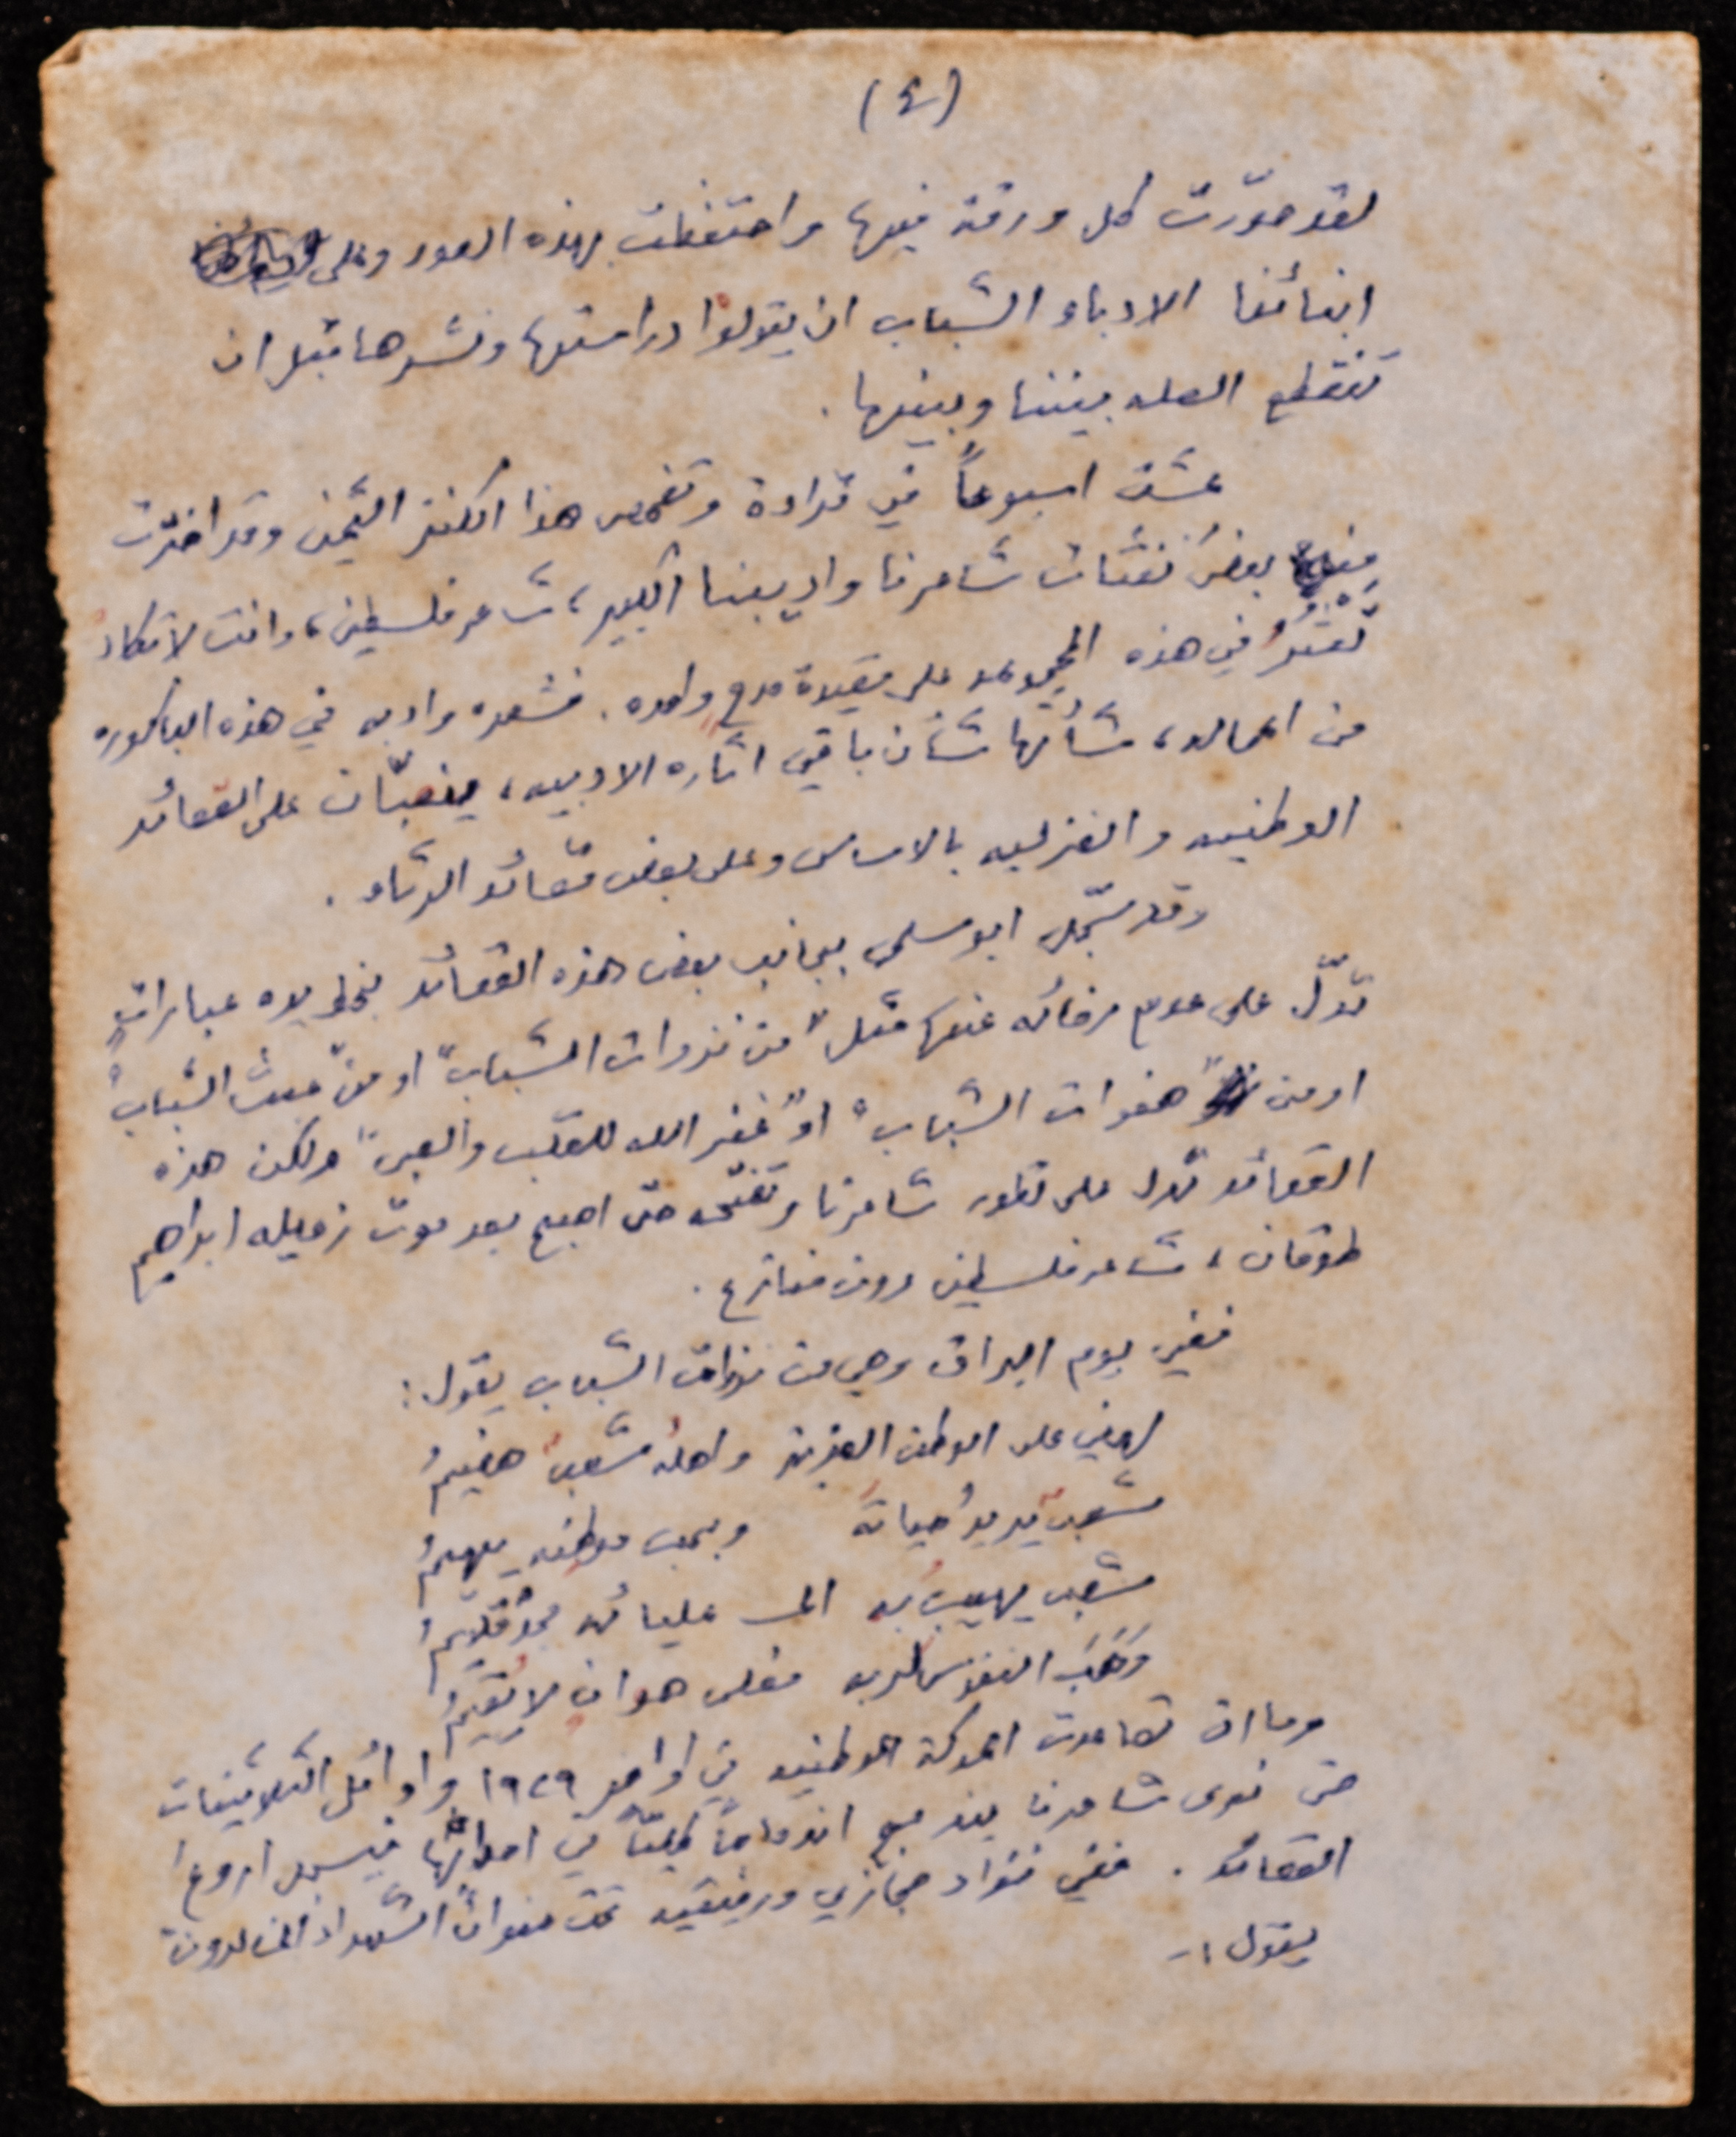 (٤)
لقد صوّرت كل ورقة فيها واحتفظت بهذه الصور وعلى
ابنائنا الادباء الشباب ان يتولوا دراستها ونشرها قبل ان
تنقطع الصله بيننا وبينها .
عشت اسبوعاً في قراءة وتفحص هذا الكنز الثمين وقد اخترت
منه بعض نفثات شاعرنا واديبنا الكبير، شاعر فلسطين، وانت لا تكاد
تعثرُ في هذه المجموعه على قصيدة مدح واحده . فشعره وادبه في هذه الباكوره
من اعماله، شأنها شأن باقي اثاره الادبيه، ينصبّان على القصائد
الوطنيه والغزليه بالاساس وعلى بعض قصائد الرثاء .
وقد سجّل ابو سلمى بجانب بعض هذه القصائد بخط يده عباراتٍ
تدلّ على عدم رضائه عنها مثل "من نزوات الشباب" او من "عبث الشباب"
او من "هفوات الشباب" او "غفر الله للقلب والعين" ولكن هذه
القصائد تدل على تطور شاعرنا وتفتّحه حتى اصبح بعد موت زميله ابراهيم
طوقان، شاعر فلسطين دون منازع .
ففي يوم البراق وهي من نزوات الشباب يقول :
لهفي على الوطن العزيز واهله شعبٌ هضيمُ
شعبٌ يريدُ حياتَهُ وبحب موطنه يهيمُ
شعب يهيبُ به الى عليائه مجدٌ قديمُ
وَهَبَ النفوس لربه فعلى هوان لا يُقيمُ
وما ان تصاعدت الحركة الوطنيه في اواخر ١٩٢٩ واوائل الثلاثينات
حتى نرى شاعرنا يندمج اندماجاً كليّاً في احداثها فيسجل اروع
القصائد . ففي فؤاد حجازي ورفيقيه تحت عنوان "الشهداء الخالدون"
يقول :-